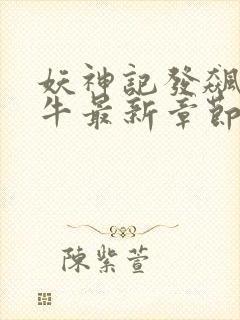 妖神記發飆
牛最新章節
陳紫萱